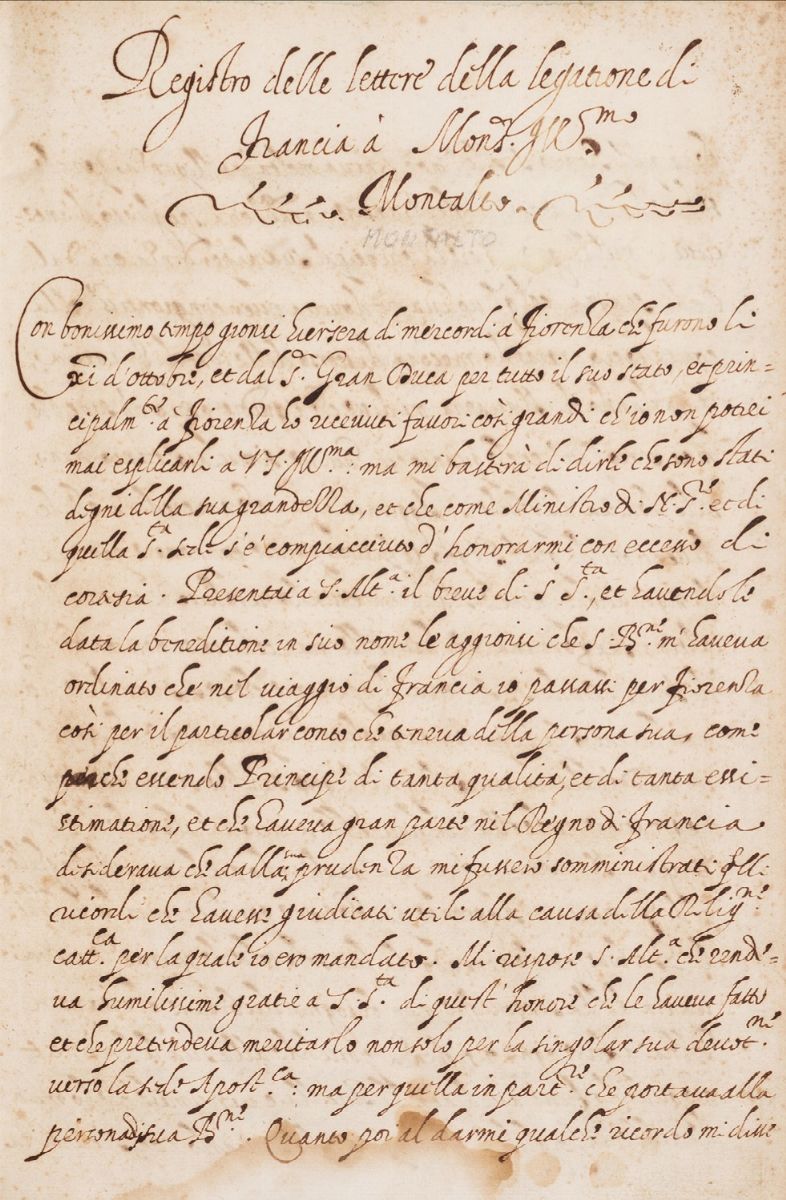 Registro delle lettere della legatione di
Francia à Mons.r Ill.mo
Montalto.
MONTALTO
Con bonissimo tempo gionsi hiersera di mercordi à Fiorenza che furono li
xi d'ottobre, et dal S.r Gran Duca per tutto il suo stato, et prin=
cipalm.te à Fiorenza ho ricevuti favori così grandi ch'io non potrei
mai esplicarli a V.S. Ill.ma: ma mi basterà di dirle che sono stati
degni della sua grandezza, et che come Ministro di N. S.re et di
quella S.ta sede s'è compiacciuto d'honorarmi con eccesso di
cortesia. Presentai a S. Alt.a il breve di S. S.ta, et havendole
data la beneditione in suo nome le aggionsi che S. B.ne m'haveva
ordinato che nel viaggio di Francia io passassi per Fiorenza
così per il particolar conto che teneva della persona sua, come
perche essendo Principe di tanta qualità, et di tanta essi=
stimatione, et che haveva gran parte nel Regno di Francia
desiderava che dalla sua prudenza mi fussero somministrati q̃lli
ricordi che havesse giudicati utili alla causa della Relig.ne
catt.ca per la quale io ero mandato. Mi rispose S. Alt.a che rende=
va humilissime gratie a S. S.ta di quest' honore che le haveva fatto
et che pretendeva meritarlo non solo per la singolar sua devot.ne
verso la sede Apost.ca: ma per quella in part.re che portava alla
persona di sua B.ne. Quanto poi al darmi qualche ricordo mi disse